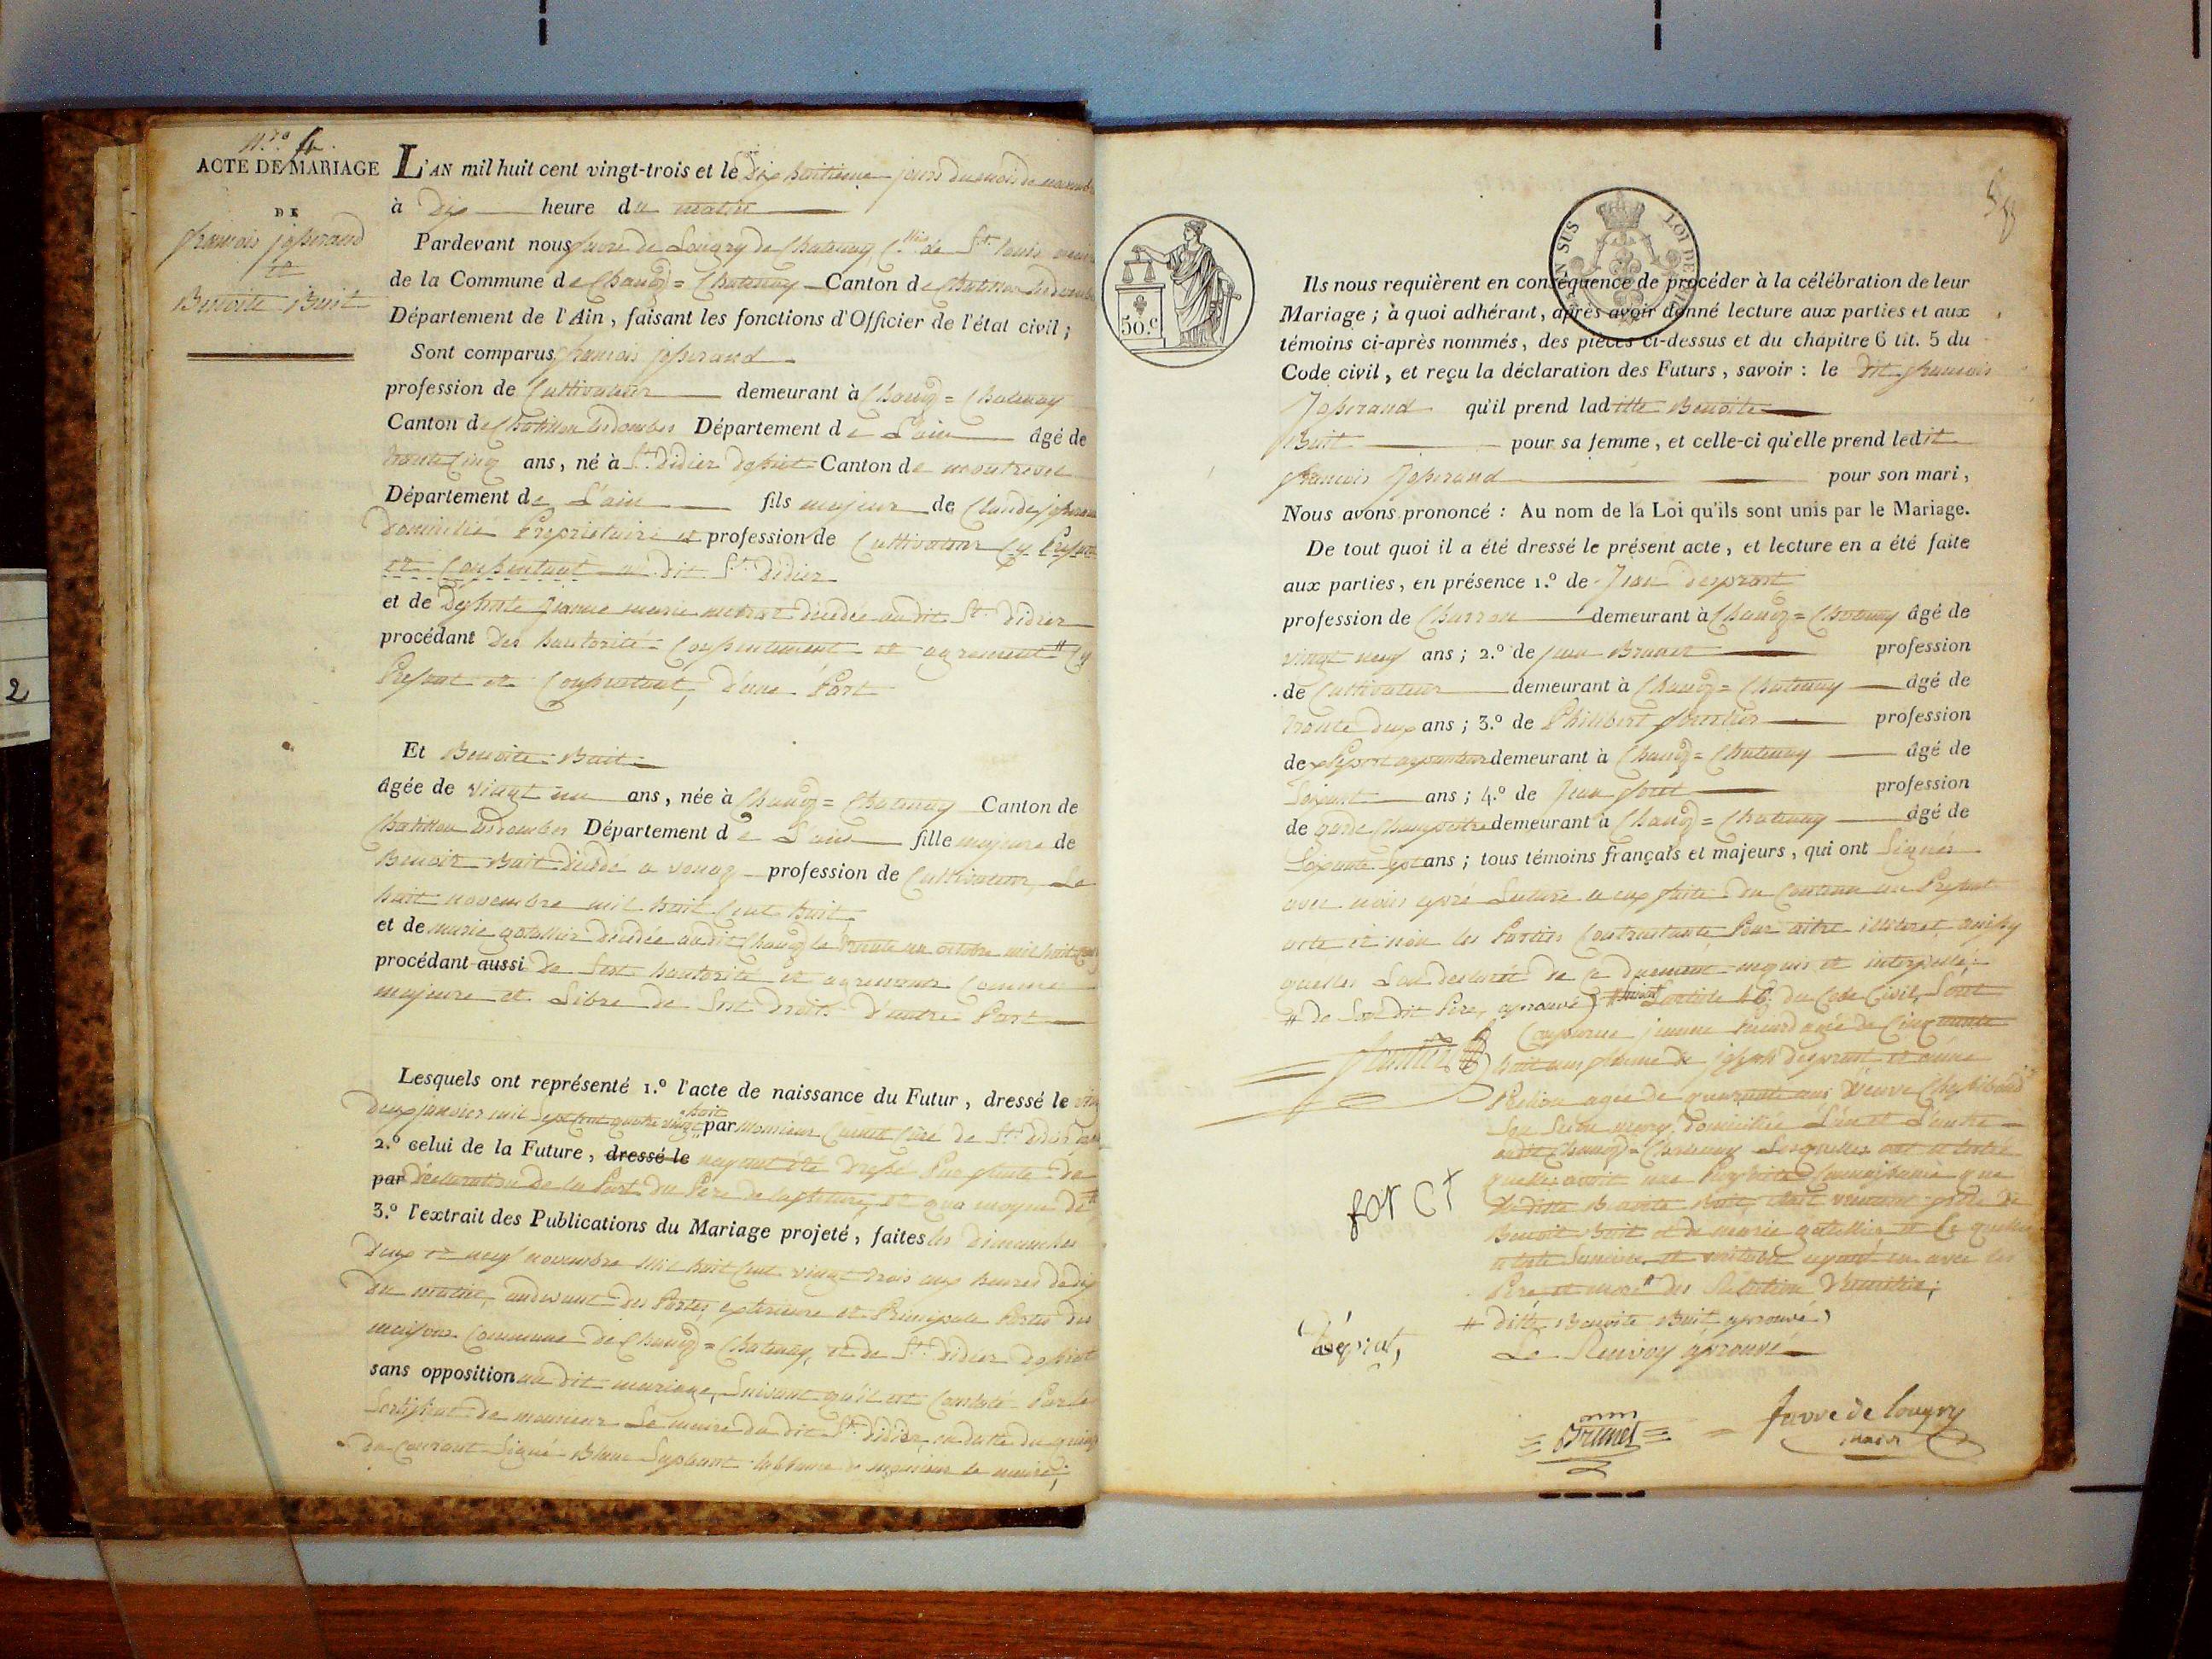 N.ro 4.
ACTE DE MARIAGE
DE
françois josserand
et
Benoite Buit
L'AN mil huit cent vingt-trois et le Dix huitieme jours du mois de novemb
à Dix heure du matin
Pardevant nous favre de Longry de Chatenay Ch. de St. Louis maire
de la Commune de Chanoz = Chatenay Canton de Chatillon lesdombes
Département de l'Ain, faisant les fonctions d'Officier de l'état civil;
Sont comparus françois josserand
profession de Cultivateur demeurant à Chanoz = Chatenay
Canton de Chatillon lesdombes Département de L'ain âgé de
trente Cinq ans, né à St. didier dossiat Canton de montrevel
Département de L'ain fils majeur de Claude josserand
domicilié Proprietaire et profession de Cultivateur Cy Present
et Consentant au dit St. Didier
et de deffunte jeanne marie decedée audit St. Didier
procédant des hautorité Consentement et agrement # Cy
Present et Consentant, d'une Part
Et Benoite Buit
âgée de vingt un ans, née à Chanoz = Chatenay Canton de
Chatillon lesdombes Département de L'ain fille majeure de
Benoit Buit décédé a vonas profession de Cultivateur, Le
huit novembre mil huit Cent huit
et de marie gatellier decedée audit Chanoz le trente un octobre mil huit
procédant aussi de Sest hautorité et agrement Comme
majeure et Libre de Sest droits d'autre Part
Lesquels ont représenté 1.º l'acte de naissance du Futur, dressé le vingt
deux janvier mil Sept Cent quatre vingt huit par Monsieur Curé de St. didier
2.º celui de la Future, dressé le nayant été dressé Par faute de
par déclaration de la Part du Père de la future, et quo moyen de #
3.º l'extrait des Publications du Mariage projeté, faites les dimanches
deux et neuf novembre Mil huit Cent vingt trois aux heures de dix
du matin, audevant des Portes exterieure et Principale Portes des
maison Commune de Chanoz = Chatenay, et de St. Didier dossiat
sans opposition au dit mariage, Suivant qu'il est Constaté Par le
Sertificat de monsieur Le maire du dit St. Didier, en datte du quinze
du Courant Signé Blanc Supleant labsence de monsieur le maire;
50.c
LOI DE
Ils nous requièrent en conséquence de procéder à la célébration de leur
Mariage; à quoi adhérant, après avoir donné lecture aux parties et aux
témoins ci-après nommés, des pièces ci-dessus et du chapitre 6 tit. 5 du
Code civil, et reçu la déclaration des Futurs, savoir: le dit francois
Josserand qu'il prend laditte Benoite
Buit pour sa femme, et celle-ci qu'elle prend ledit
francois Josserand pour son mari,
Nous avons prononcé: Au nom de la Loi qu'ils sont unis par le Mariage.
De tout quoi il a été dressé le présent acte, et lecture en a été faite
aux parties, en présence 1.º de Jean desprat
profession de Charron demeurant à Chanoz = Chatenay âgé de
vingt neuf ans; 2.º de jean Brunet profession
de Cultivateur demeurant à Chanoz = Chatenay âgé de
trente deux ans; 3.º de Philibert profession
de demeurant à Chanoz = Chatenay âgé de
Soixante ans; 4.º de Jean foret profession
de garde Champestre demeurant à Chanoz = Chatenay âgé de
Soixante Sept ans; tous témoins français et majeurs, qui ont Signés
avec nous apré Lecture a eux faite du Contenu au Present
acte et non les Parties Contractante Pour aitre illiteret ainsy
quelles Lon declarét de ce duement requis et interpellé:
# de Son dit Père, aprouvé, # Suivant Lartille 46 du Code Civil, Sont
Comparue jeanne agée de Cinquante
huit ans femme de joseph desprat et
agée de quarante ans veuve
Son Marÿ, domiciliée L'un et L'autre
audit Chanoz = Chatenay Lesquelles ont attesté
quelles avoit une Parfaite Connoissance que
La ditte Benoite Buit, étoit vraiment fille de
Benoit Buit et de marie gatellier et Ce quelles
atteste Sincère et véritable ayant eu avec les
Père et mere # des Relation
# ditte Benoite Buit aprouvé
Le Renvoy aprouvé
forct
déprat,
Brunet
favre de longry
maire